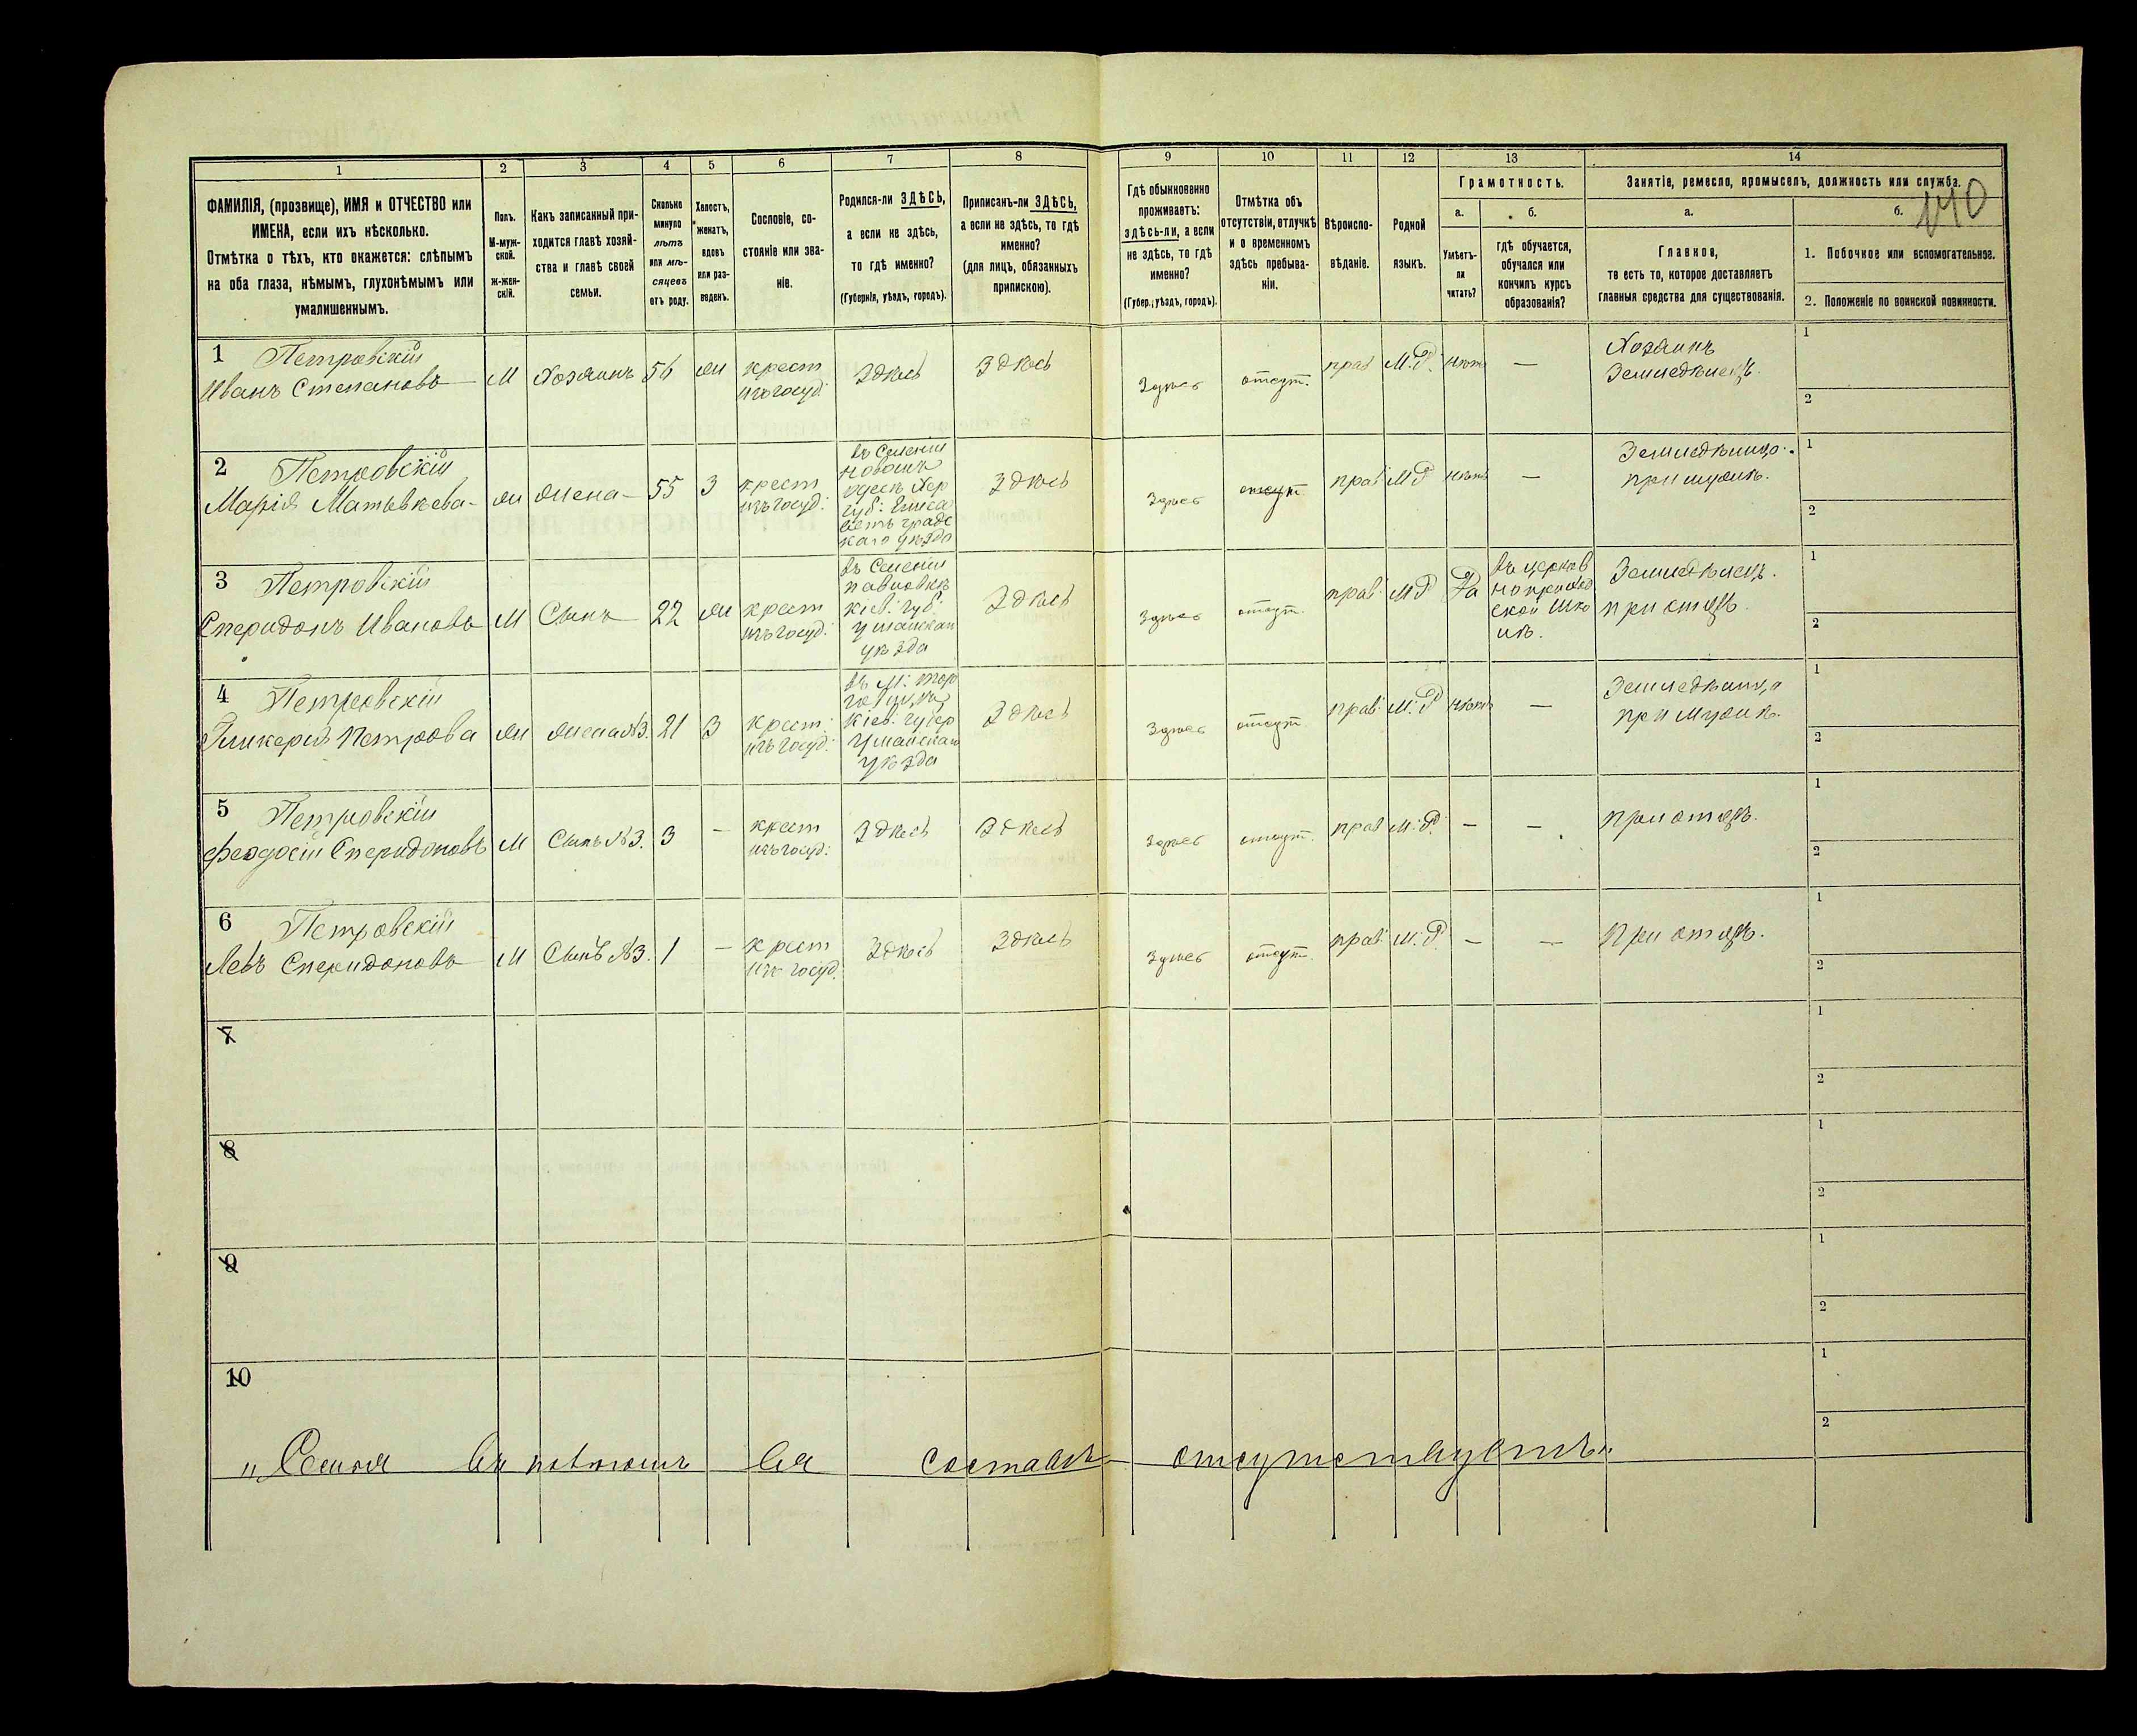 140
1 2 3 4 5 6 7 8 9 10 11 12 13 14
ФАМИЛІЯ, (прозвище), ИМЯ и ОТЧЕСТВО или
ИМЕНА, если ихъ нѣсколько.
Отмѣтка о тѣхъ, кто окажется: слѣпымъ
на оба глаза, нѣмымъ, глухонѣмымъ или
умалишеннымъ.
Полъ.
М-муж-
ской.
ж-жен-
скій.
Какъ записанный при-
ходится главѣ хозяй-
ства и главѣ своей
семьи.
Сколько
минуло
лѣтъ
или мѣ-
сяцевъ
отъ роду.
Холостъ,
женатъ,
вдовъ
или раз-
веденъ.
Сословіе, со-
стояніе или зва-
ніе.
Родился-ли ЗДѢСЬ,
а если не здѣсь,
то гдѣ именно?
(Губернія, уѣздъ, городъ).
Приписанъ-ли ЗДѢСЬ,
а если не здѣсь, то гдѣ
именно?
(для лицъ, обязанныхъ
припискою).
Гдѣ обыкновенно
проживаетъ:
здѣсь-ли, а если
не здѣсь, то гдѣ
именно?
(Губер., уѣздъ, городъ).
Отмѣтка объ
отсутствіи, отлучкѣ
и о временномъ
здѣсь пребыва-
ніи.
Вѣроиспо-
вѣданіе.
Родной
языкъ.
Грамотность.
а. б.
Умѣетъ-
ли
читать?
гдѣ обучается,
обучался или
кончилъ курсъ
образованія?
Занятіе, ремесло, промыселъ, должность или служба.
а. б.
Главное,
то есть то, которое доставляетъ
главныя средства для существованія.
1. Побочное или вспомогательное.
2. Положеніе по воинской повинности.
1 Петровскій
Иванъ Степановъ
М
Хозяинъ
жн
крест
изъ госуд.
Здѣсь
Здѣсь
Здѣсь
отсут.
прав
М.Р.
нѣтъ
—
Хозяинъ
Земледѣлецъ.
1
2
2 Петровскій
Марія Матвѣева
жн
жена
55
З
крест
изъ госуд.
въ Селеніи
Новоукр
Хер
губ. Елиса
ветъ градс
каго уѣзда
Здѣсь
Здѣсь
отсут.
прав
МР
нѣтъ
—
Земледѣлица
при мужѣ.
1
2
3 Петровскій
Спиридонъ Ивановъ
М
Сынъ
22
жн
крест
изъ госуд.
въ Селеніи
Павловкѣ
Кіев. губ.
Уманскаго
уѣзда
Здѣсь
Здѣсь
отсут.
прав.
МР
Да
въ церков
но приход
ской шко
лѣ.
Земледѣлецъ.
при отцѣ.
1
2
4 Петровскій
Гликерія Петрова
жн
жена №3.
21
З
крест.
изъ госуд.
въ М.
Кіев. губер
Уманскаго
уѣзда
Здѣсь
Здѣсь
отсут.
прав.
М.Р
нѣтъ
—
Земледѣлица
при мужѣ.
1
2
5 Петровскій
Феодосій Спиридоновъ
М
Сынъ №3.
3
—
крест
изъ госуд.
Здѣсь
Здѣсь
Здѣсь
отсут.
прав
М.Р.
—
—
при отцѣ.
1
2
6 Петровскій
Левъ Спиридоновъ
М
Сынъ №3.
1
—
крест
изъ госуд.
Здѣсь
Здѣсь
Здѣсь
отсут.
прав.
М.Р.
—
—
При отцѣ.
1
2
7
1
2
8
1
2
9
1
2
10
1
2
„Семья въ полномъ ея составѣ отсутствуетъ“